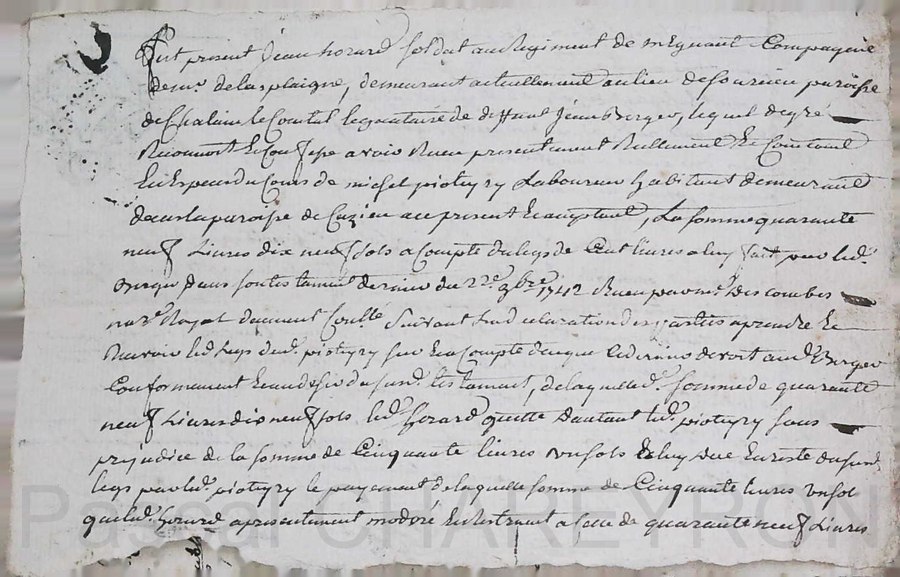 fut present Jean horard soldat au Regiment de Compagnie
de laplaigne, demeurant actuellement au lieu de Sourcieu paroisse
de Chalain le Comtal legataire de deffunt Jean Berger, lequel de gré
Reconnoit & Confesse avoir Receu presentement Reellement & Comtant
En Especes du Cours de michel pioteyry Laboureur habitant demeurant
dans la paroisse de Cuzieu a ce present & acceptant, La somme quarante
neuf Livres dix neuf sols a Compte du legs de Cent livres a luy fait par led.
Berger dans son testament dernier du 22e 9bre 1742 Receu par me Descombes
nore Royal dument Conllé Suivant la declaration des parties aprendre &
Recevoir led legs dud. pioteyry sur & a Compte de ce que ce dernier devoit aud. Berger
Conformement Enoncé aud testament, de laquelle d. somme de quarante
neuf Livres dix neuf sols led. horard quitte D'autant led. pioteyry sans
prejudice de la somme de Cinquante livres un sols a luy due En reste du sud.
legs par led. pioteyry le payement de laquelle somme de Cinquante livres un sol
que led. horard a presentement moderé & restraint a celle de quarante neuf Livres
Pascal CHAREYRON